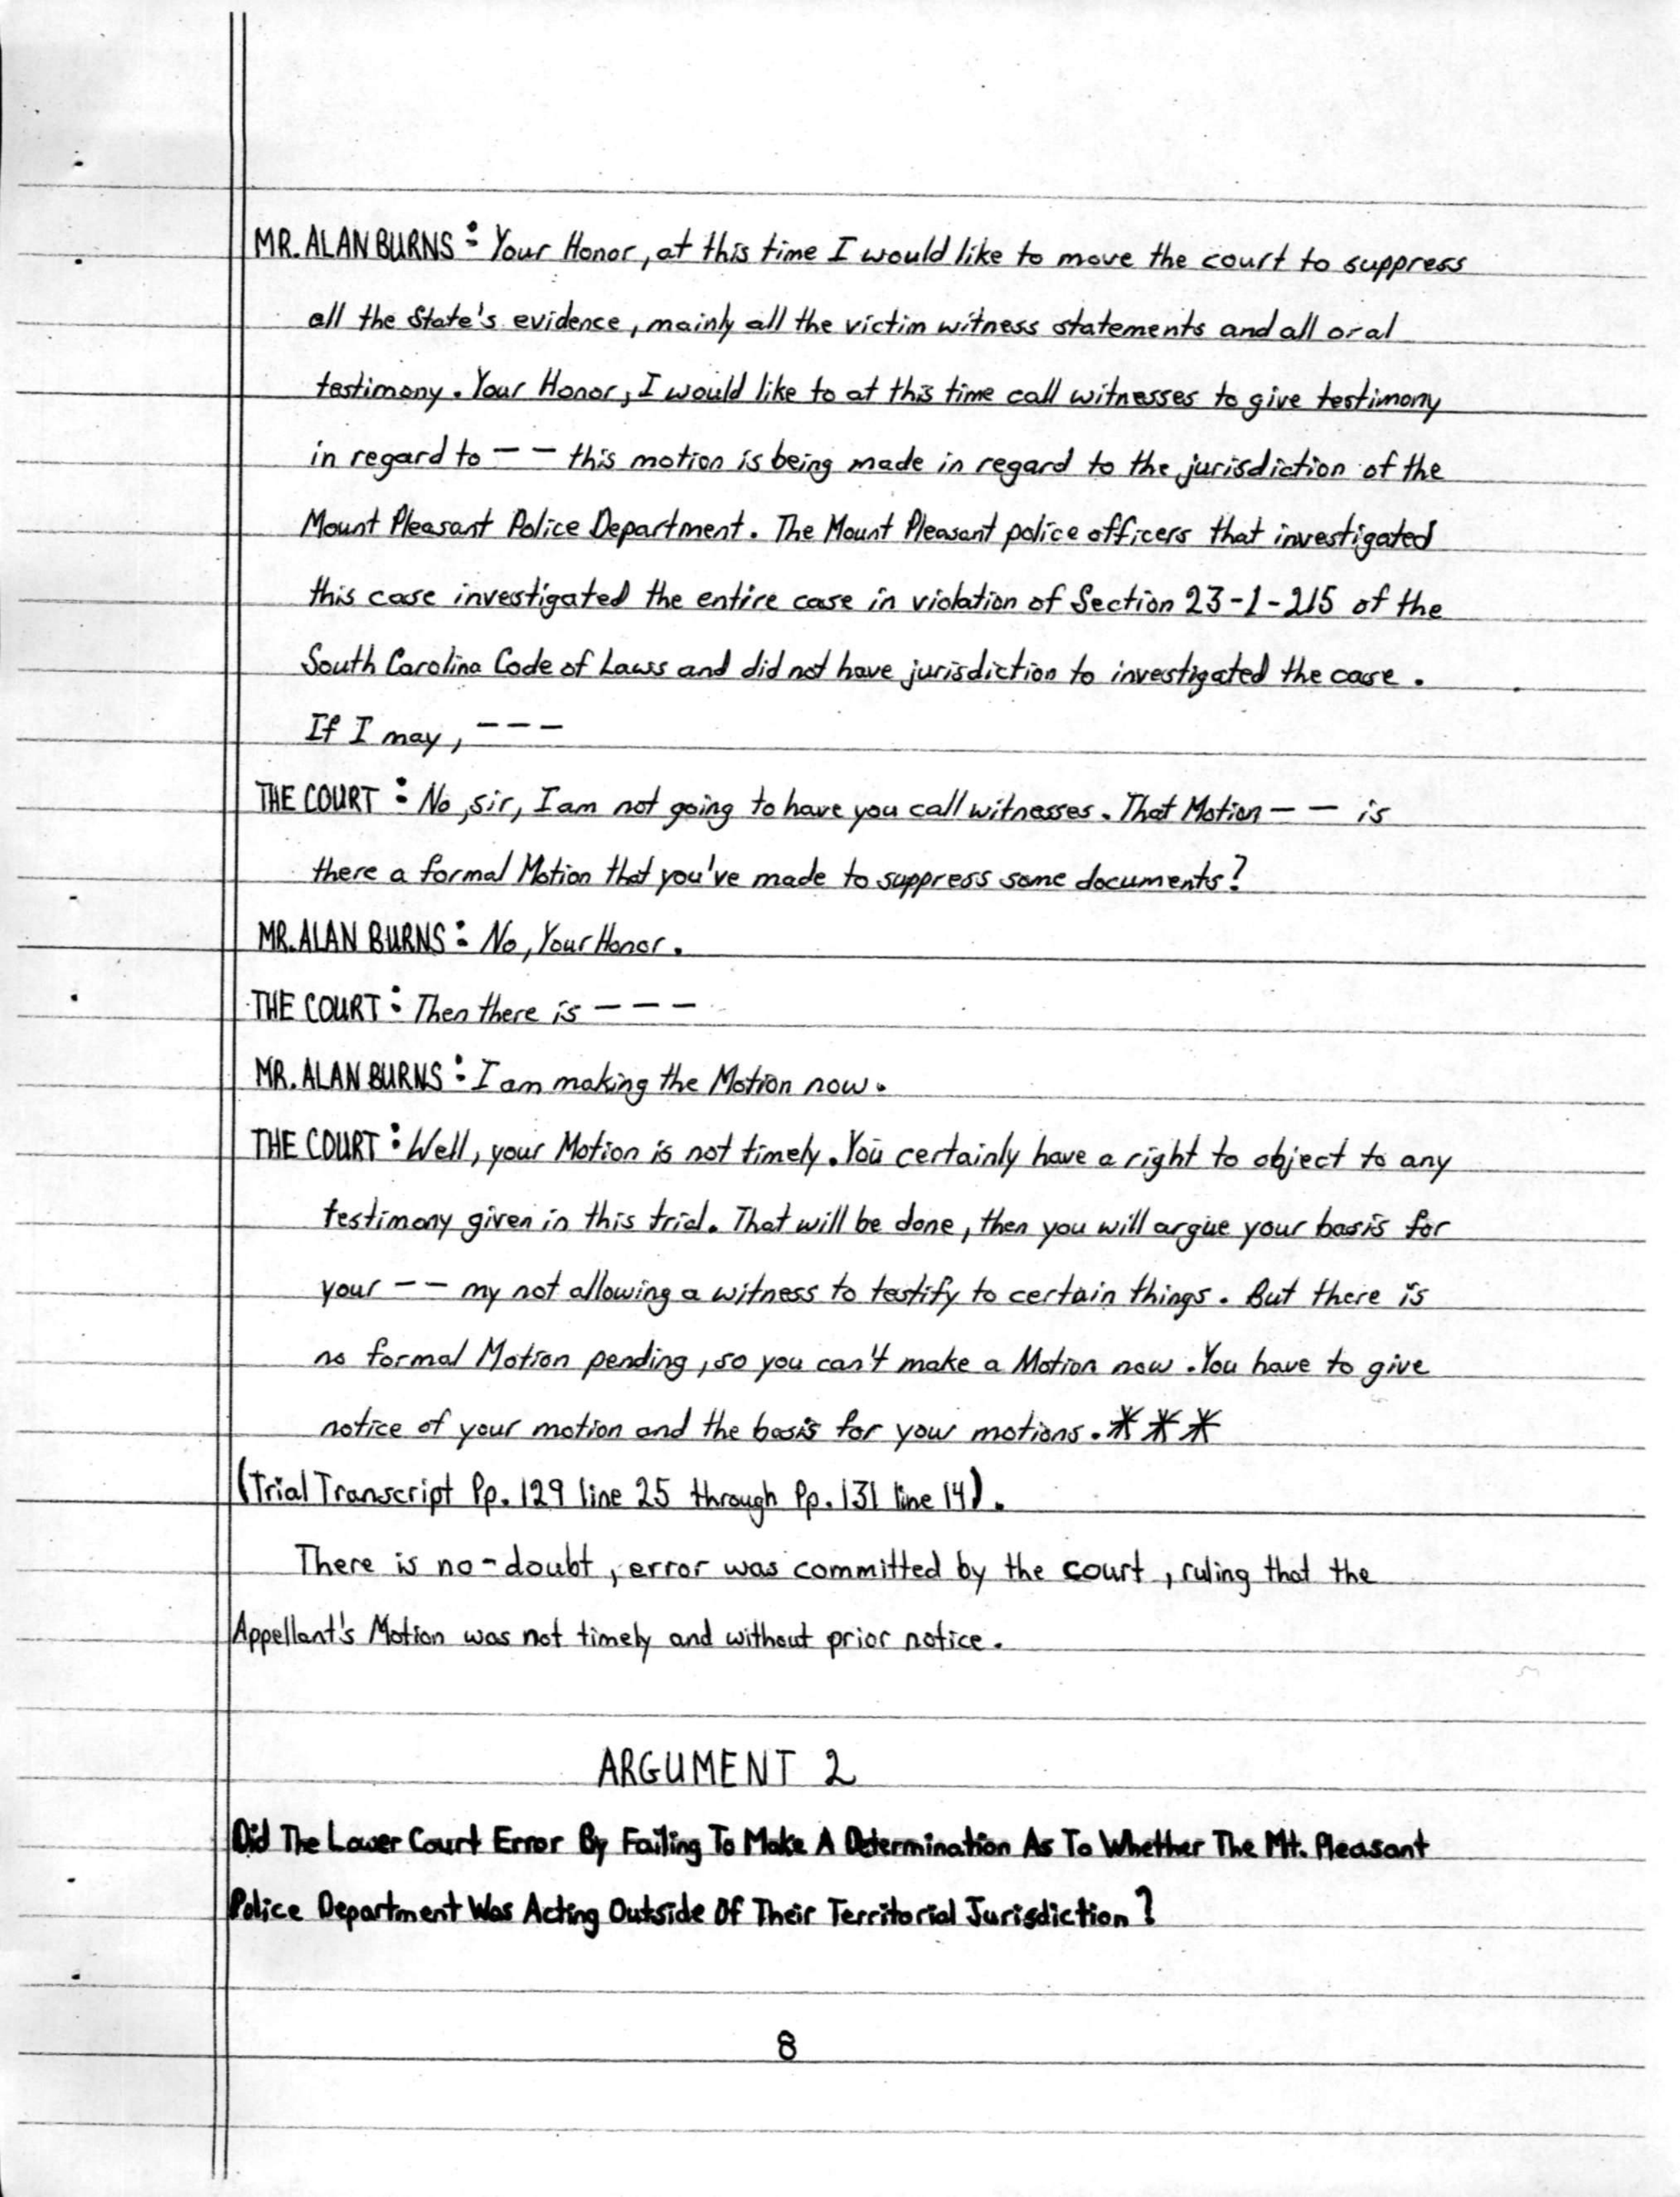 MR. ALAN BURNS: Your Honor, at this time I would like to move the court to suppress
all the State's evidence, mainly all the victim witness statements and all oral
testimony. Your Honor, I would like to at this time call witnesses to give testimony
in regard to -- this motion is being made in regard to the jurisdiction of the
Mount Pleasant Police Department. The Mount Pleasant police officers that investigated
this case investigated the entire case in violation of Section 23-1-215 of the
South Carolina Code of Laws and did not have jurisdiction to investigated the case.
If I may, ---
THE COURT: No, sir, I am not going to have you call witnesses. That Motion -- is
there a formal Motion that you've made to suppress some documents?
MR. ALAN BURNS: No, Your Honor.
THE COURT: Then there is ---
MR. ALAN BURNS: I am making the Motion now.
THE COURT: Well, your Motion is not timely. You certainly have a right to object to any
testimony given in this trial. That will be done, then you will argue your basis for
your -- my not allowing a witness to testify to certain things. But there is
no formal Motion pending, so you can't make a Motion now. You have to give
notice of your motion and the basis for your motions. ***
(Trial Transcript Pp. 129 line 25 through Pp. 131 line 14).
There is no-doubt, error was committed by the court, ruling that the
Appellant's Motion was not timely and without prior notice.
ARGUMENT 2
Did The Lower Court Error By Failing To Make A Determination As To Whether The Mt. Pleasant
Police Department Was Acting Outside Of Their Territorial Jurisdiction?
8